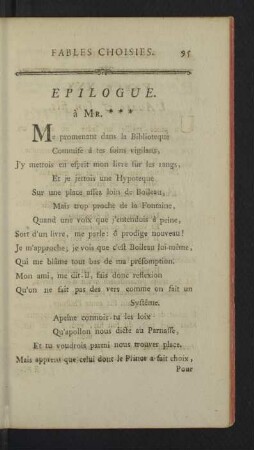 FABLES CHOISIES. 95
EPILOGUE.
à MR. ***
Me promenant dans la Biblioteque
Commise à tes soins vigilans,
J'y mettois en esprit mon livre sur les rangs,
Et je jettois une Hypoteque
Sur une place assés loin de Boileau,
Mais trop proche de la Fontaine,
Quand une voix que j'entendois à peine,
Sort d'un livre, me parle: ô prodige nouveau!
Je m'approche; je vois que c'est Boileau lui-même,
Qui me blâme tout bas de ma présomtion.
Mon ami, me dit-il, fais donc reflexion
Qu'on ne fait pas des vers comme on fait un
Systême.
Apeine connois-tu les loix
Qu'apollon nous dicte au Parnasse,
Et tu voudrois parmi nous trouver place.
Mais apprens que celui dont le Pinde a fait choix,
Pour